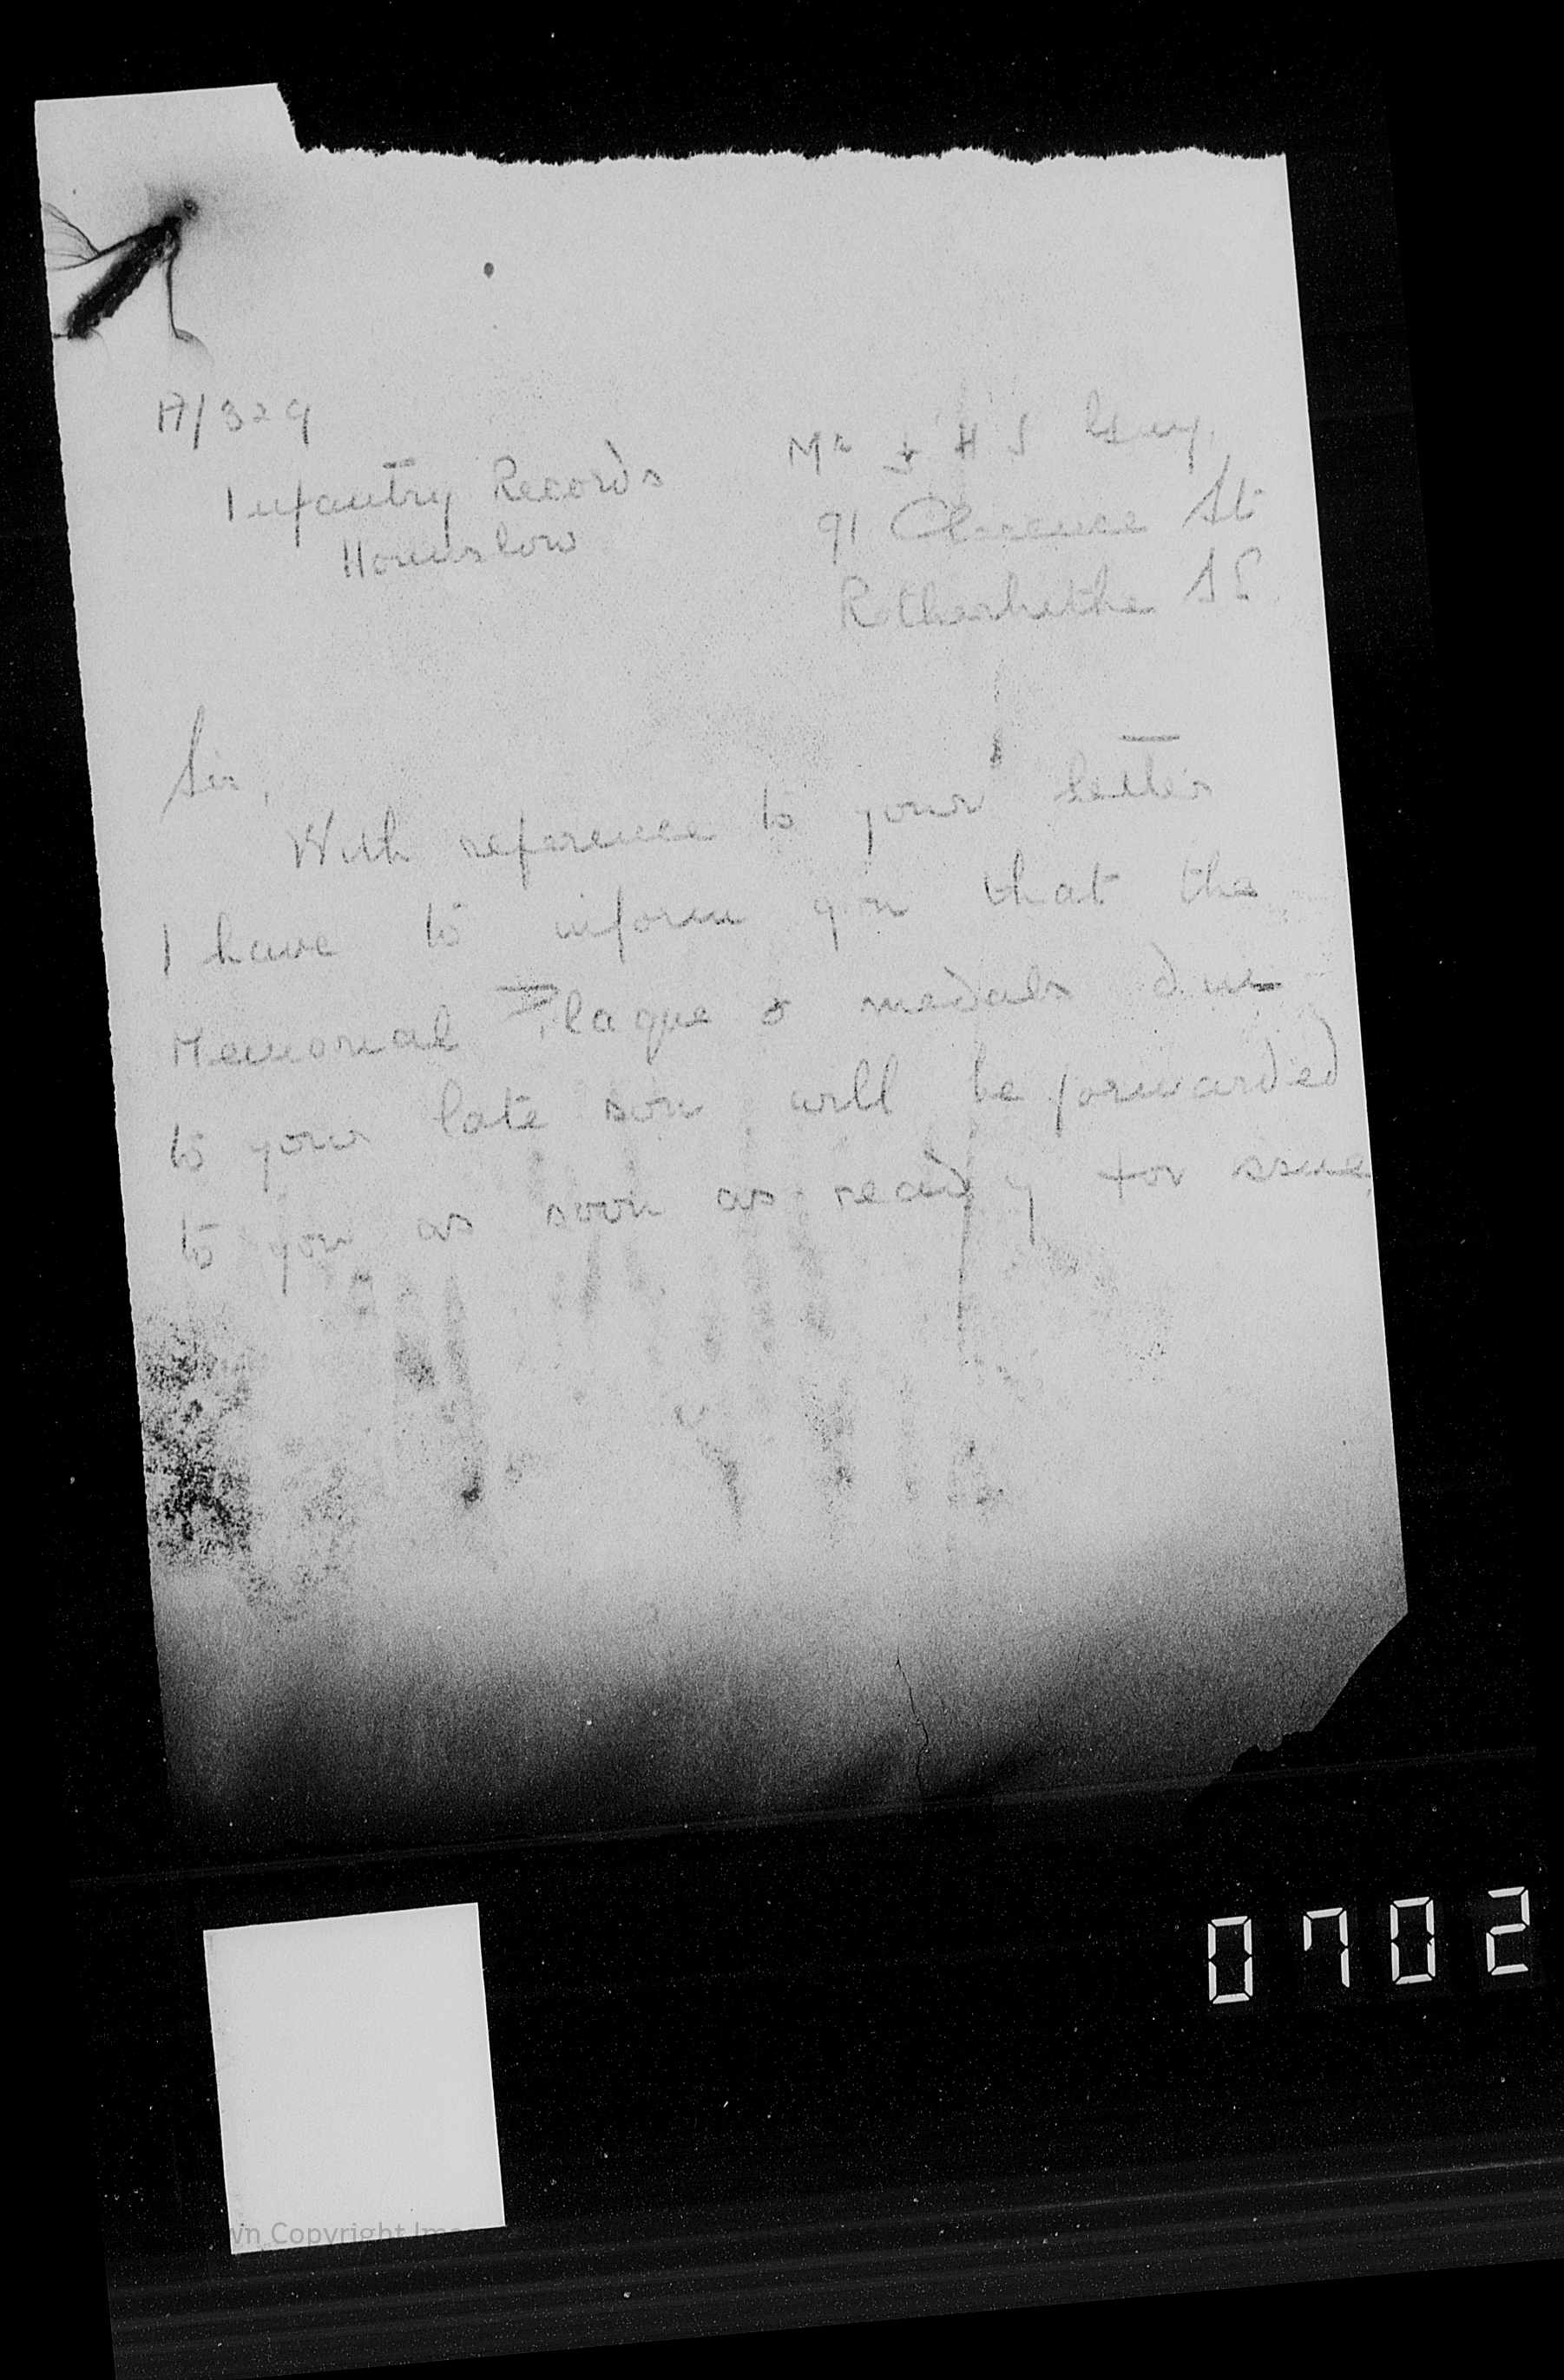 A/329
Infantry Records
Hounslow
Mr J H S Guy,
91 Clarence St
Rotherhithe SE
Sir,
With reference to your letter
I have to inform you that the
Memorial Plaque & medals due
to your late son will be forwarded
to you as soon as ready for issue
0702
wn Copyright Im